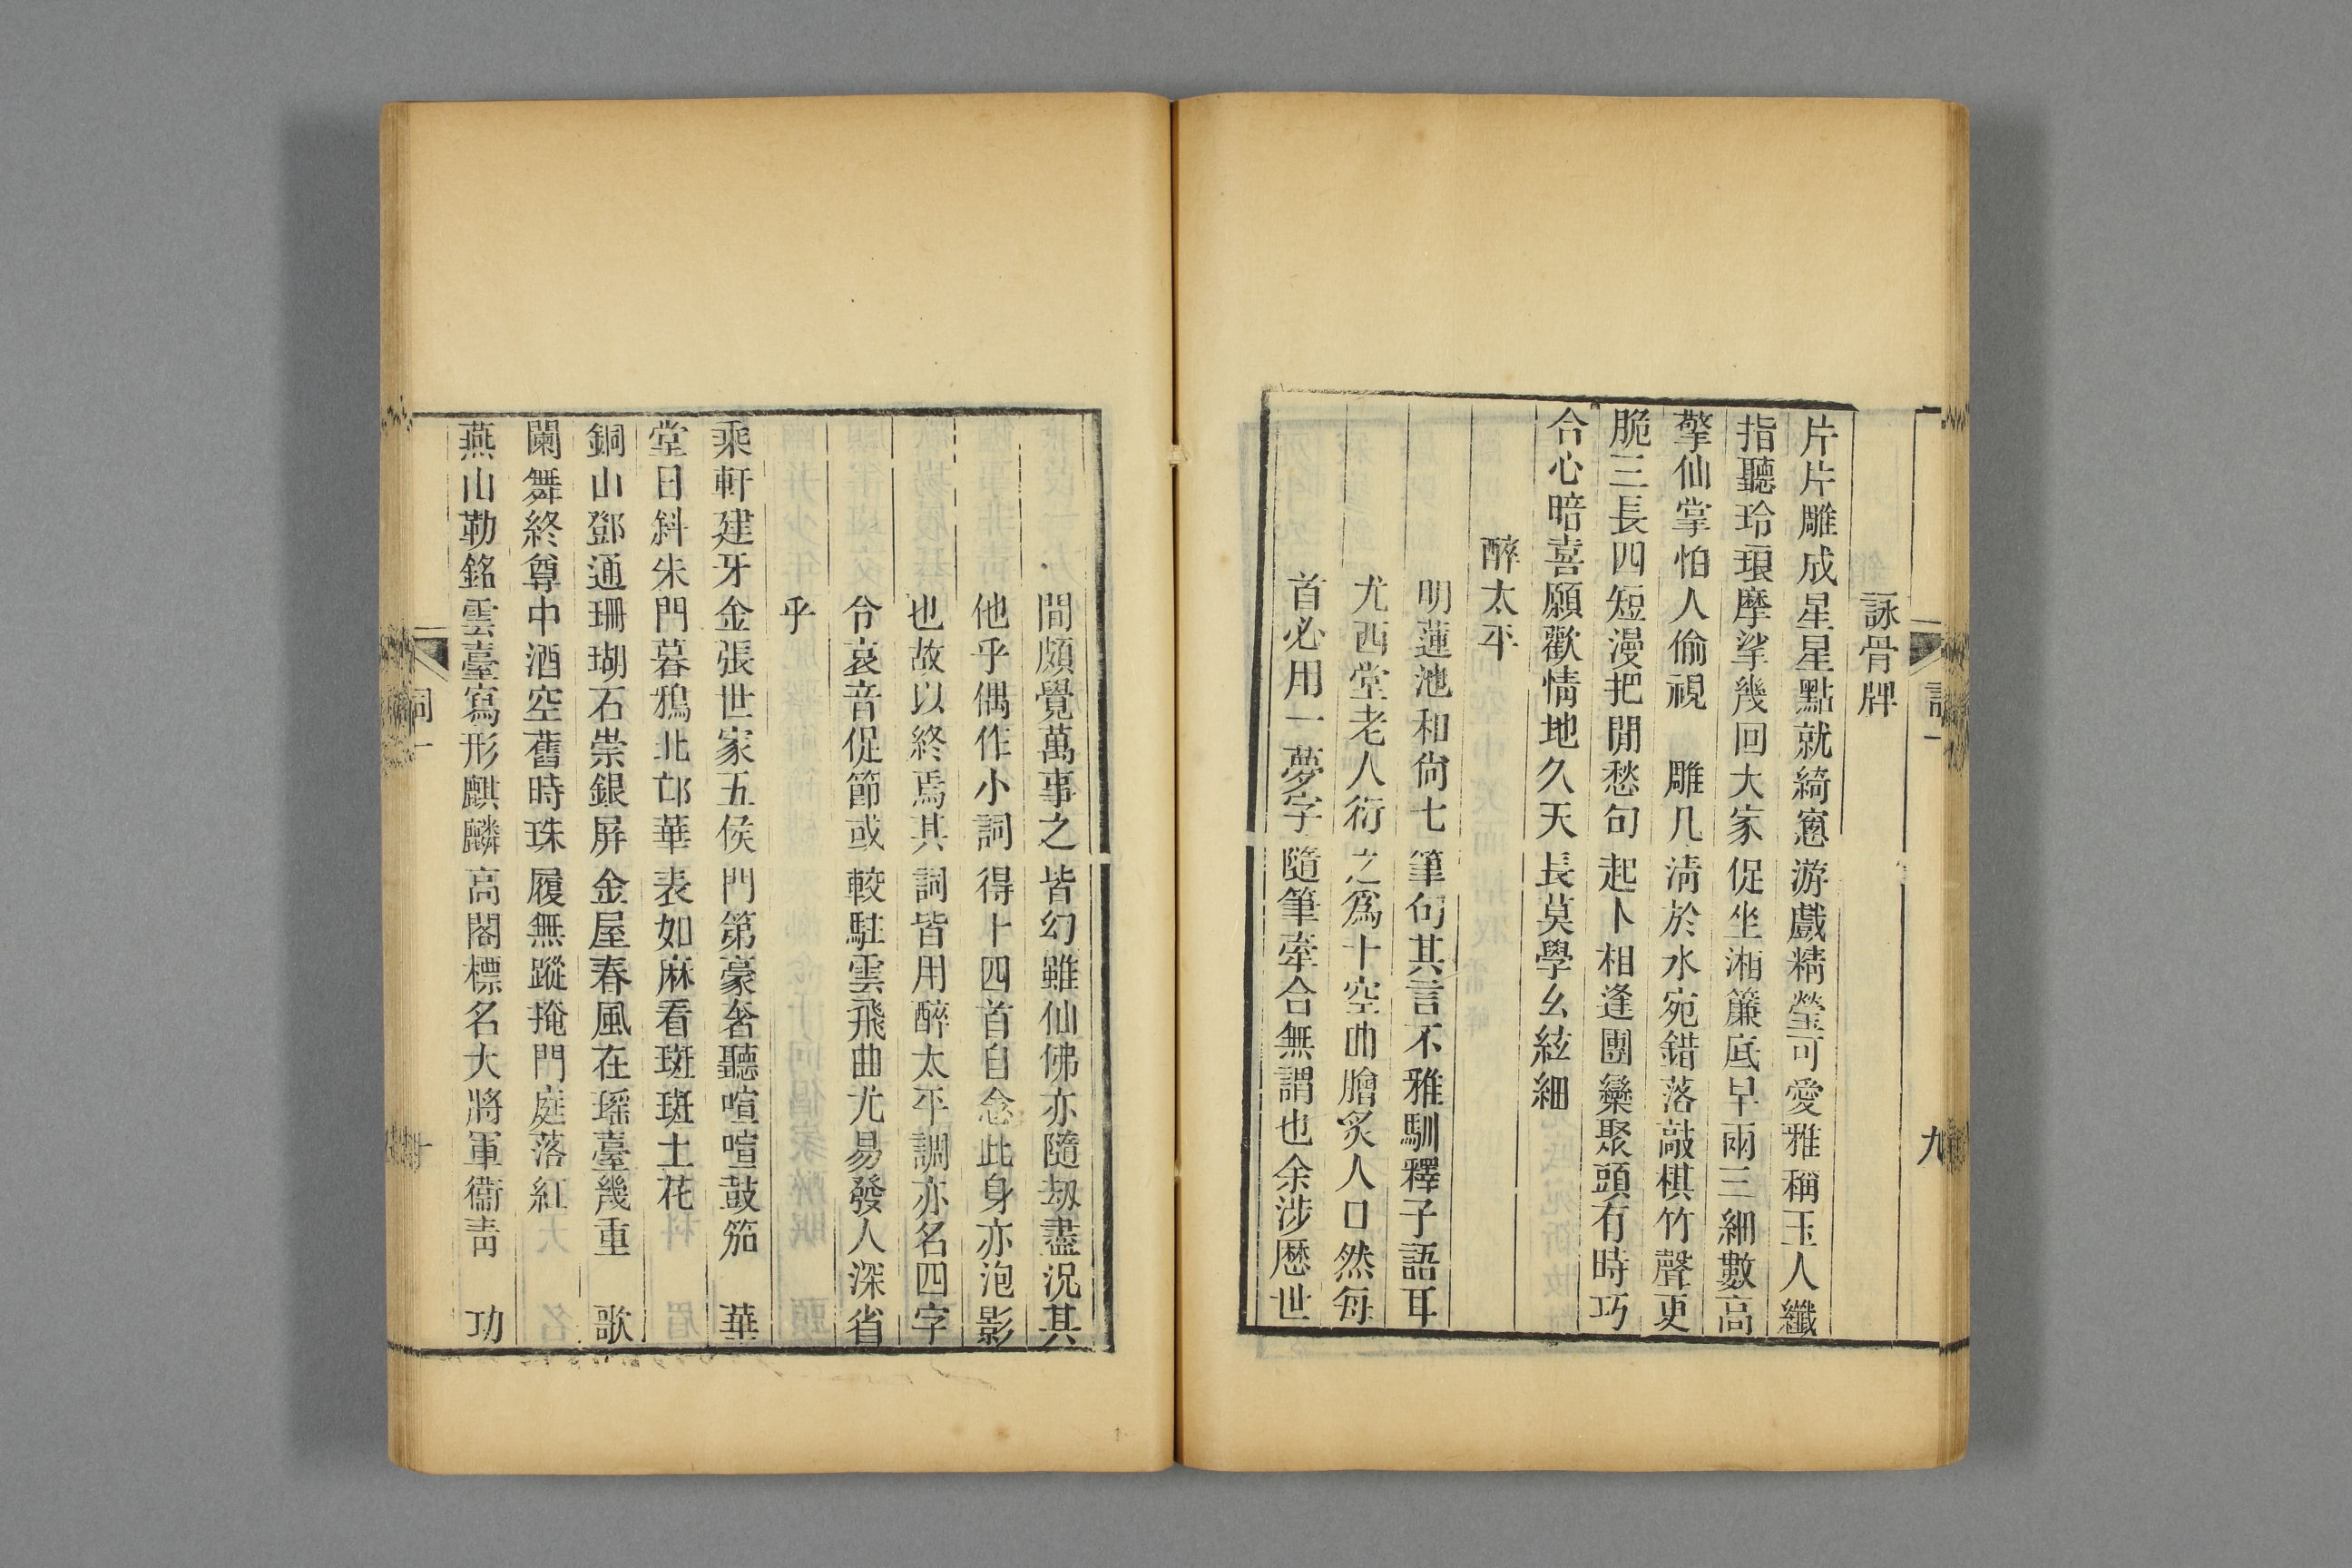 詠骨牌
片片雕成星星點就綺窻游戲精瑩可愛雅稱玉人纖
指聽玲琅摩挲幾回大家促坐湘簾底早兩三細數高
擎仙掌怕人偷視　雕几淸於水宛錯落敲棋竹聲更
脆三長四短漫把閒愁句起卜相逢團欒聚頭有時巧
合心暗喜願歡情地久天長莫學幺絃細
醉太平
明蓮池和尙七筆句其言不雅馴釋子語耳
尤西堂老人衍之爲十空曲膾炙人口然每
首必用一夢字隨筆牽合無謂也余涉歷世
九
間頗覺萬事之皆幻雖仙佛亦隨劫盡況其
他乎偶作小詞得十四首自念此身亦泡影
也故以終焉其詞皆用醉太平調亦名四字
令哀音促節或較駐雲飛曲尤易發人深省
乎
乘軒建牙金張世家五侯門第豪奢聽喧喧鼓笳　華
堂日斜朱門暮鴉北邙華表如麻看斑斑土花
銅山鄧通珊瑚石崇銀屏金屋春風在瑤臺幾重　歌
闌舞終尊中酒空舊時珠履無蹤掩門庭落紅
燕山勒銘雲臺寫形麒麟高閣標名大將軍衞靑　功
詞一
十